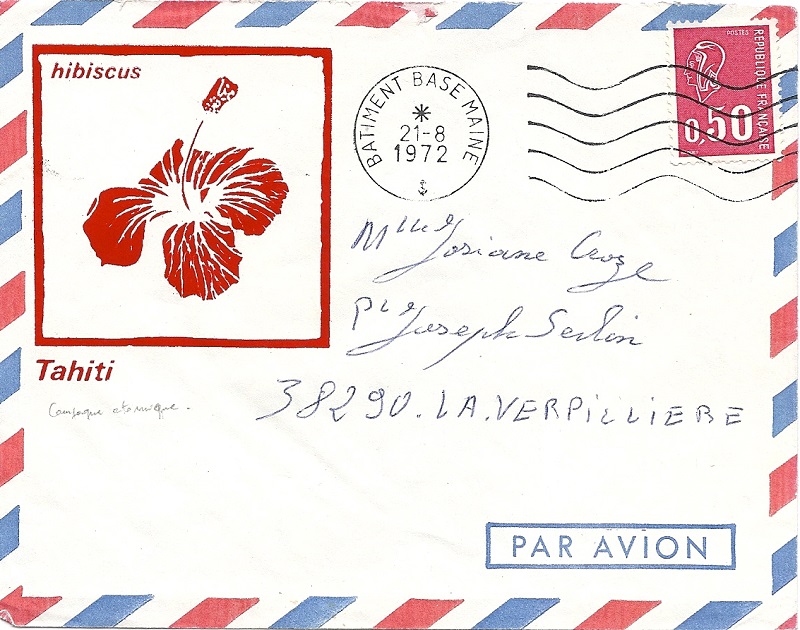 hibiscus
BATIMENT BASE MAINE
21-8
1972
POSTES
REPUBLIQUE FRANÇAISE
0,50
Mlle Josiane Croze
Ple Joseph Serlin
38290.LA.VERPILLIERE
Tahiti
Campagne atomique.
PAR AVION